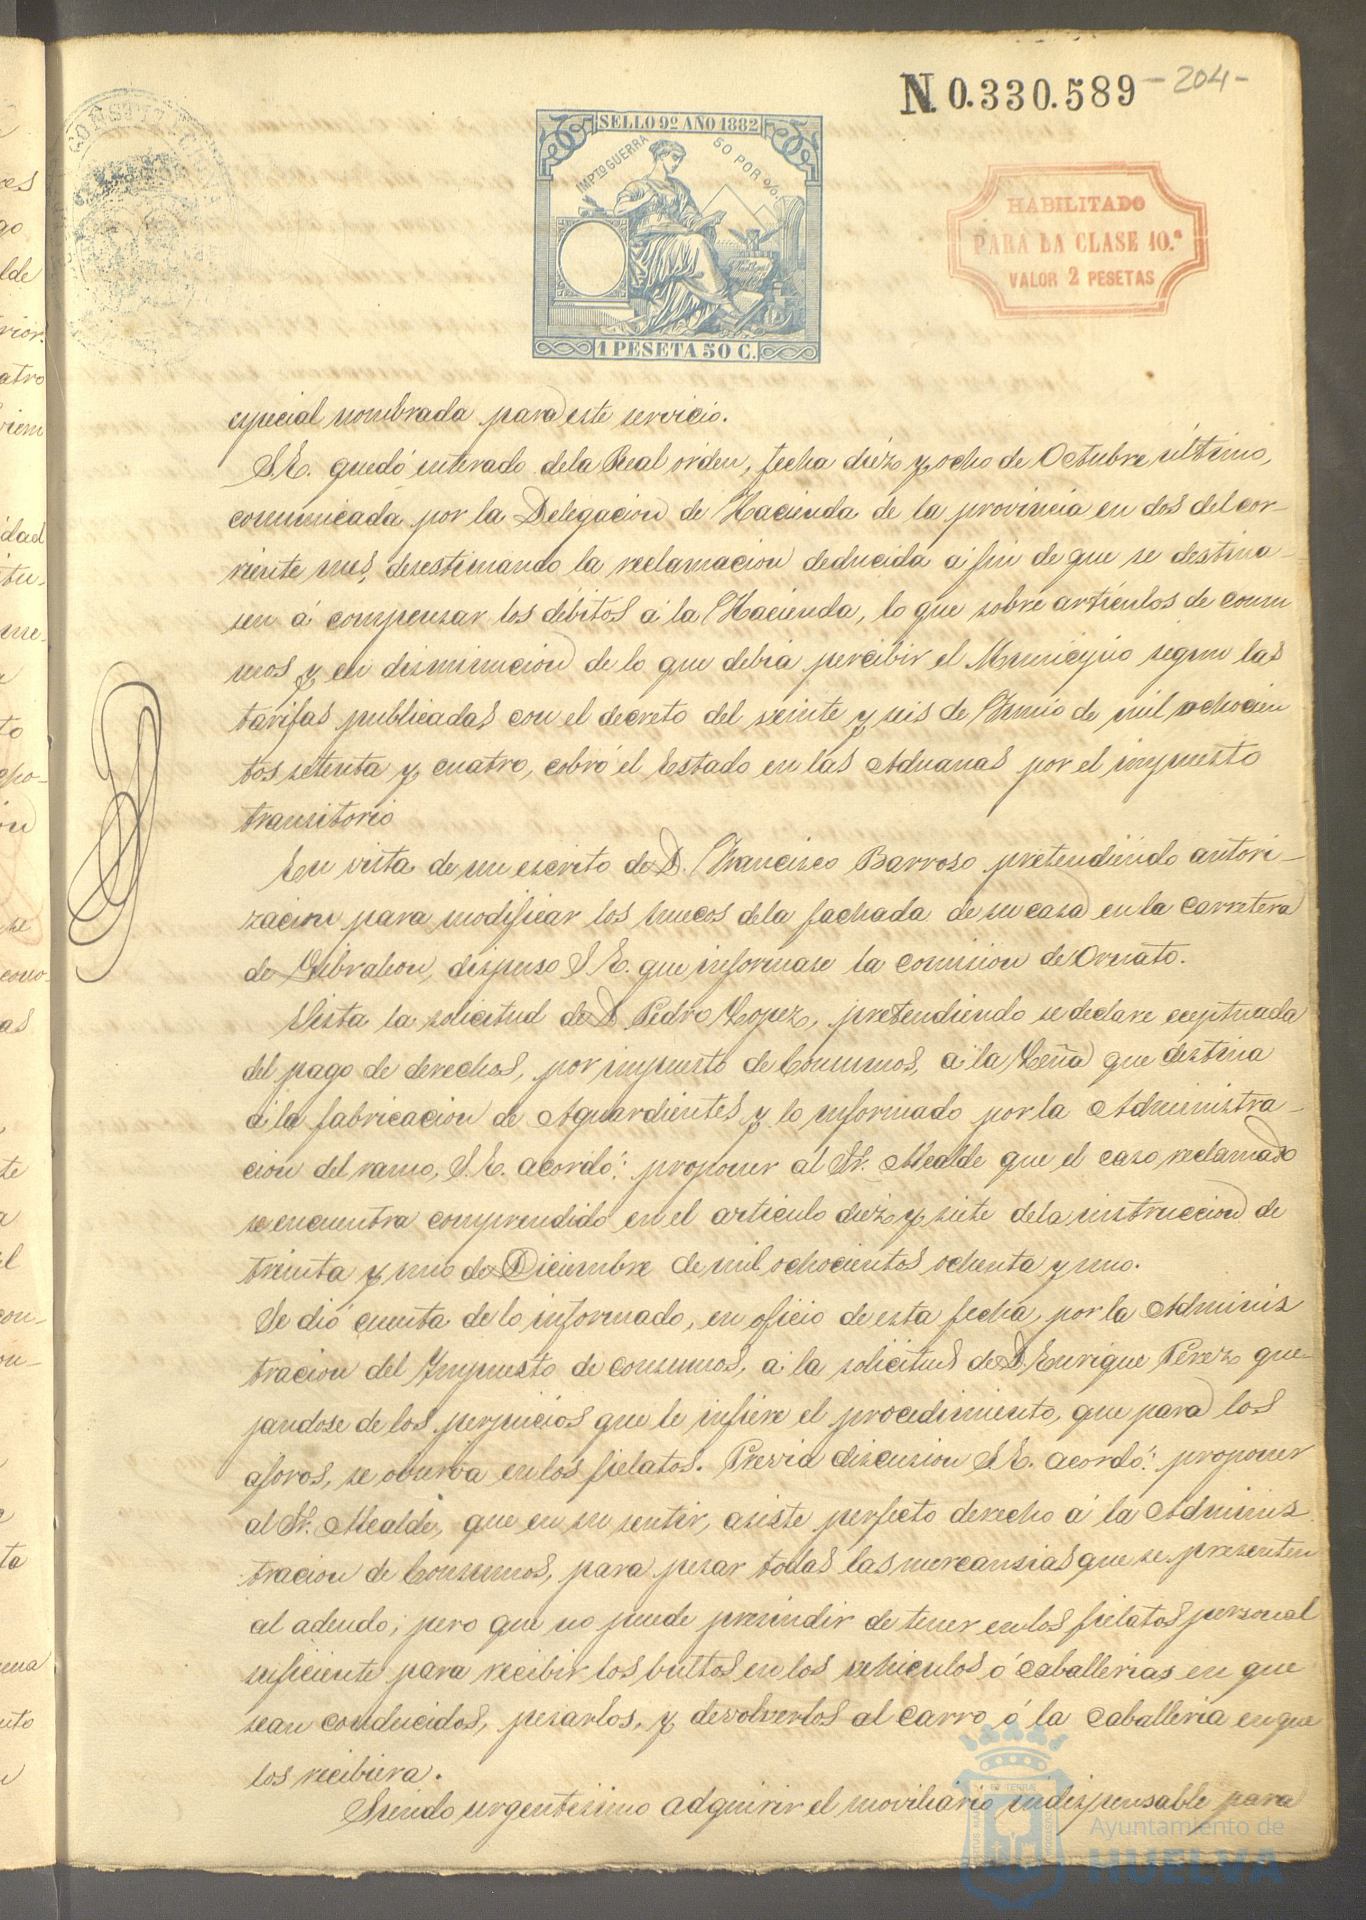 N. 0.330.589 - 204 -
CONSTITUC
SELLO 9º AÑO 1882
IMPTO GUERRA 50 POR %
1 PESETA 50 C.
HABILITADO
PARA LA CLASE 10.ª
VALOR 2 PESETAS
especial nombrada para este servicio.
S.E. quedó enterado dela Real orden, fecha diéz y ocho de Octubre último,
comunicada por la Delegacion de Hacienda de la provincia en dos del cor-
riente mes, desestimando la reclamacion deducida a fin de que se destina-
sen á compensar los débitos á la Hacienda, lo que sobre artículos de consu
mos y en disminucion de lo que debia percibir el Municipio segun las
tarifas publicadas con el decreto del veinte y seis de Junio de mil ochocien
tos setenta y cuatro, cobró el Estado en las Aduanas por el impuesto
transitorio
En vista de un escrito de D. Francisco Barroso pretendiendo autori-
zacion para modificar los huecos dela fachada de su casa en la carretera
de Gibraleon, dispuso S.E. que informase la comision de Ornato.
Vista la solicitud de D Pedro Lopez, pretendiendo se declare eceptuada
del pago de derechos, por impuesto de Consumos, á la Leña que destina
á la fabricacion de Aguardientes y lo informado por la Administra-
cion del ramo, S.E. acordó: proponer al Sr. Alcalde que el caso reclamado
se encuentra comprendido en el articulo diéz y siete dela instruccion de
treinta y uno de Diciembre de mil ochocientos ochenta y uno.
Se dió cuenta de lo informado, en oficio de esta fecha, por la Adminis
tracion del Impuesto de consumos, á la solicitud de D. Enrique Perez que-
jandose de los perjuicios que le infiere el procedimiento, que para los
aforos, se observa en los fielatos. Previa discusion S.E. acordó: proponer
al Sr. Alcalde, que en su sentir, asiste perfecto derecho á la Adminis
tracion de Consumos, para pesar todas las mercansias que se presenten
al adeudo; pero que no puede presindir de tener en los fielatos personal
suficiente para recibir los bultos en los vehiculos ó caballerias en que
sean conducidos, pesarlos, y devolverlos al carro ó la caballeria en que
los recibiera.
Siendo urgentisimo adquirir el moviliario indispensable para
Ayuntamiento de
HUELVA